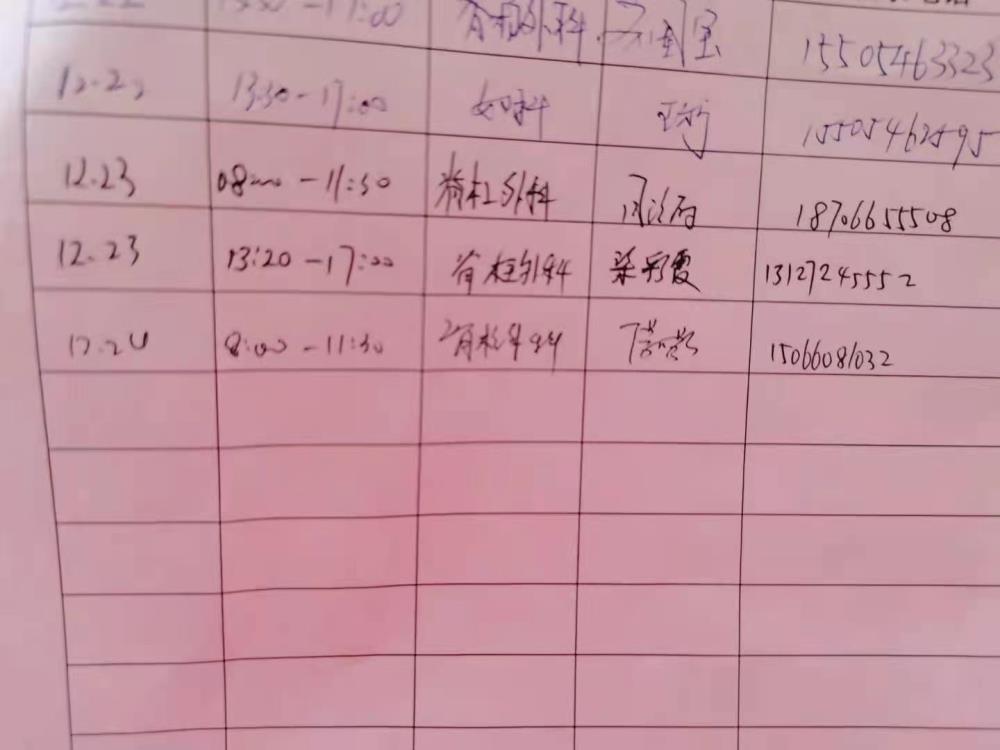 -17:00 脊柱外科 15505463323
12.22 13:30-17:00 妇科 15505462595
12.23 08:00-11:30 脊柱外科 18706655508
12.23 13:20-17:00 脊柱外科 梁彩霞 13127245552
12.24 8:00-11:30 脊柱外科 15066081032